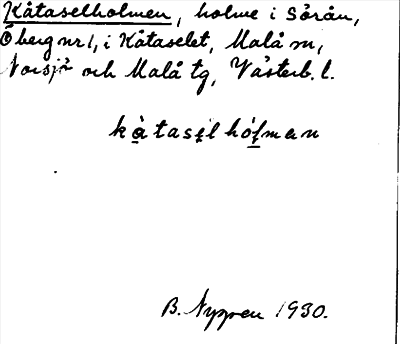 Kåtaselholmen, holme i Sörån,
Öberg nr 1, i Kåtaselet, Malå sn,
Norsjö och Malå tg, Västerb. l.
kå̀tasel hól̥man
B. Nygren 1930.